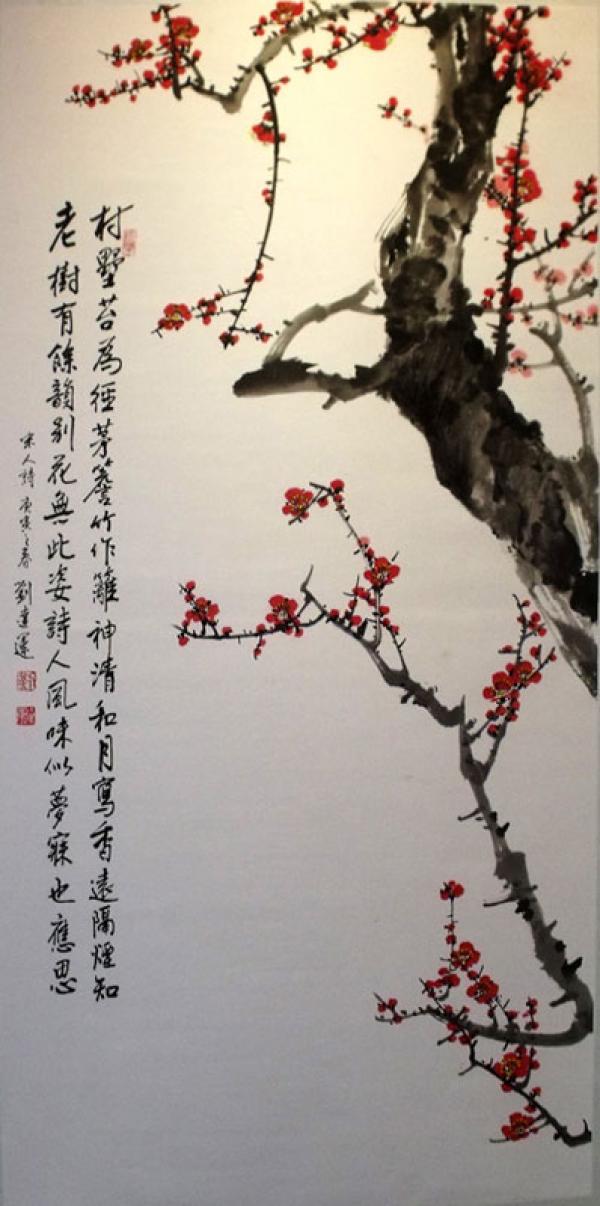 村墅苔為徑茅簷竹作籬神清和月寫香遠隔煙知
老樹有餘韻別花無此姿詩人風味似夢寐也應思
宋人詩 庚寅之春 劉達運